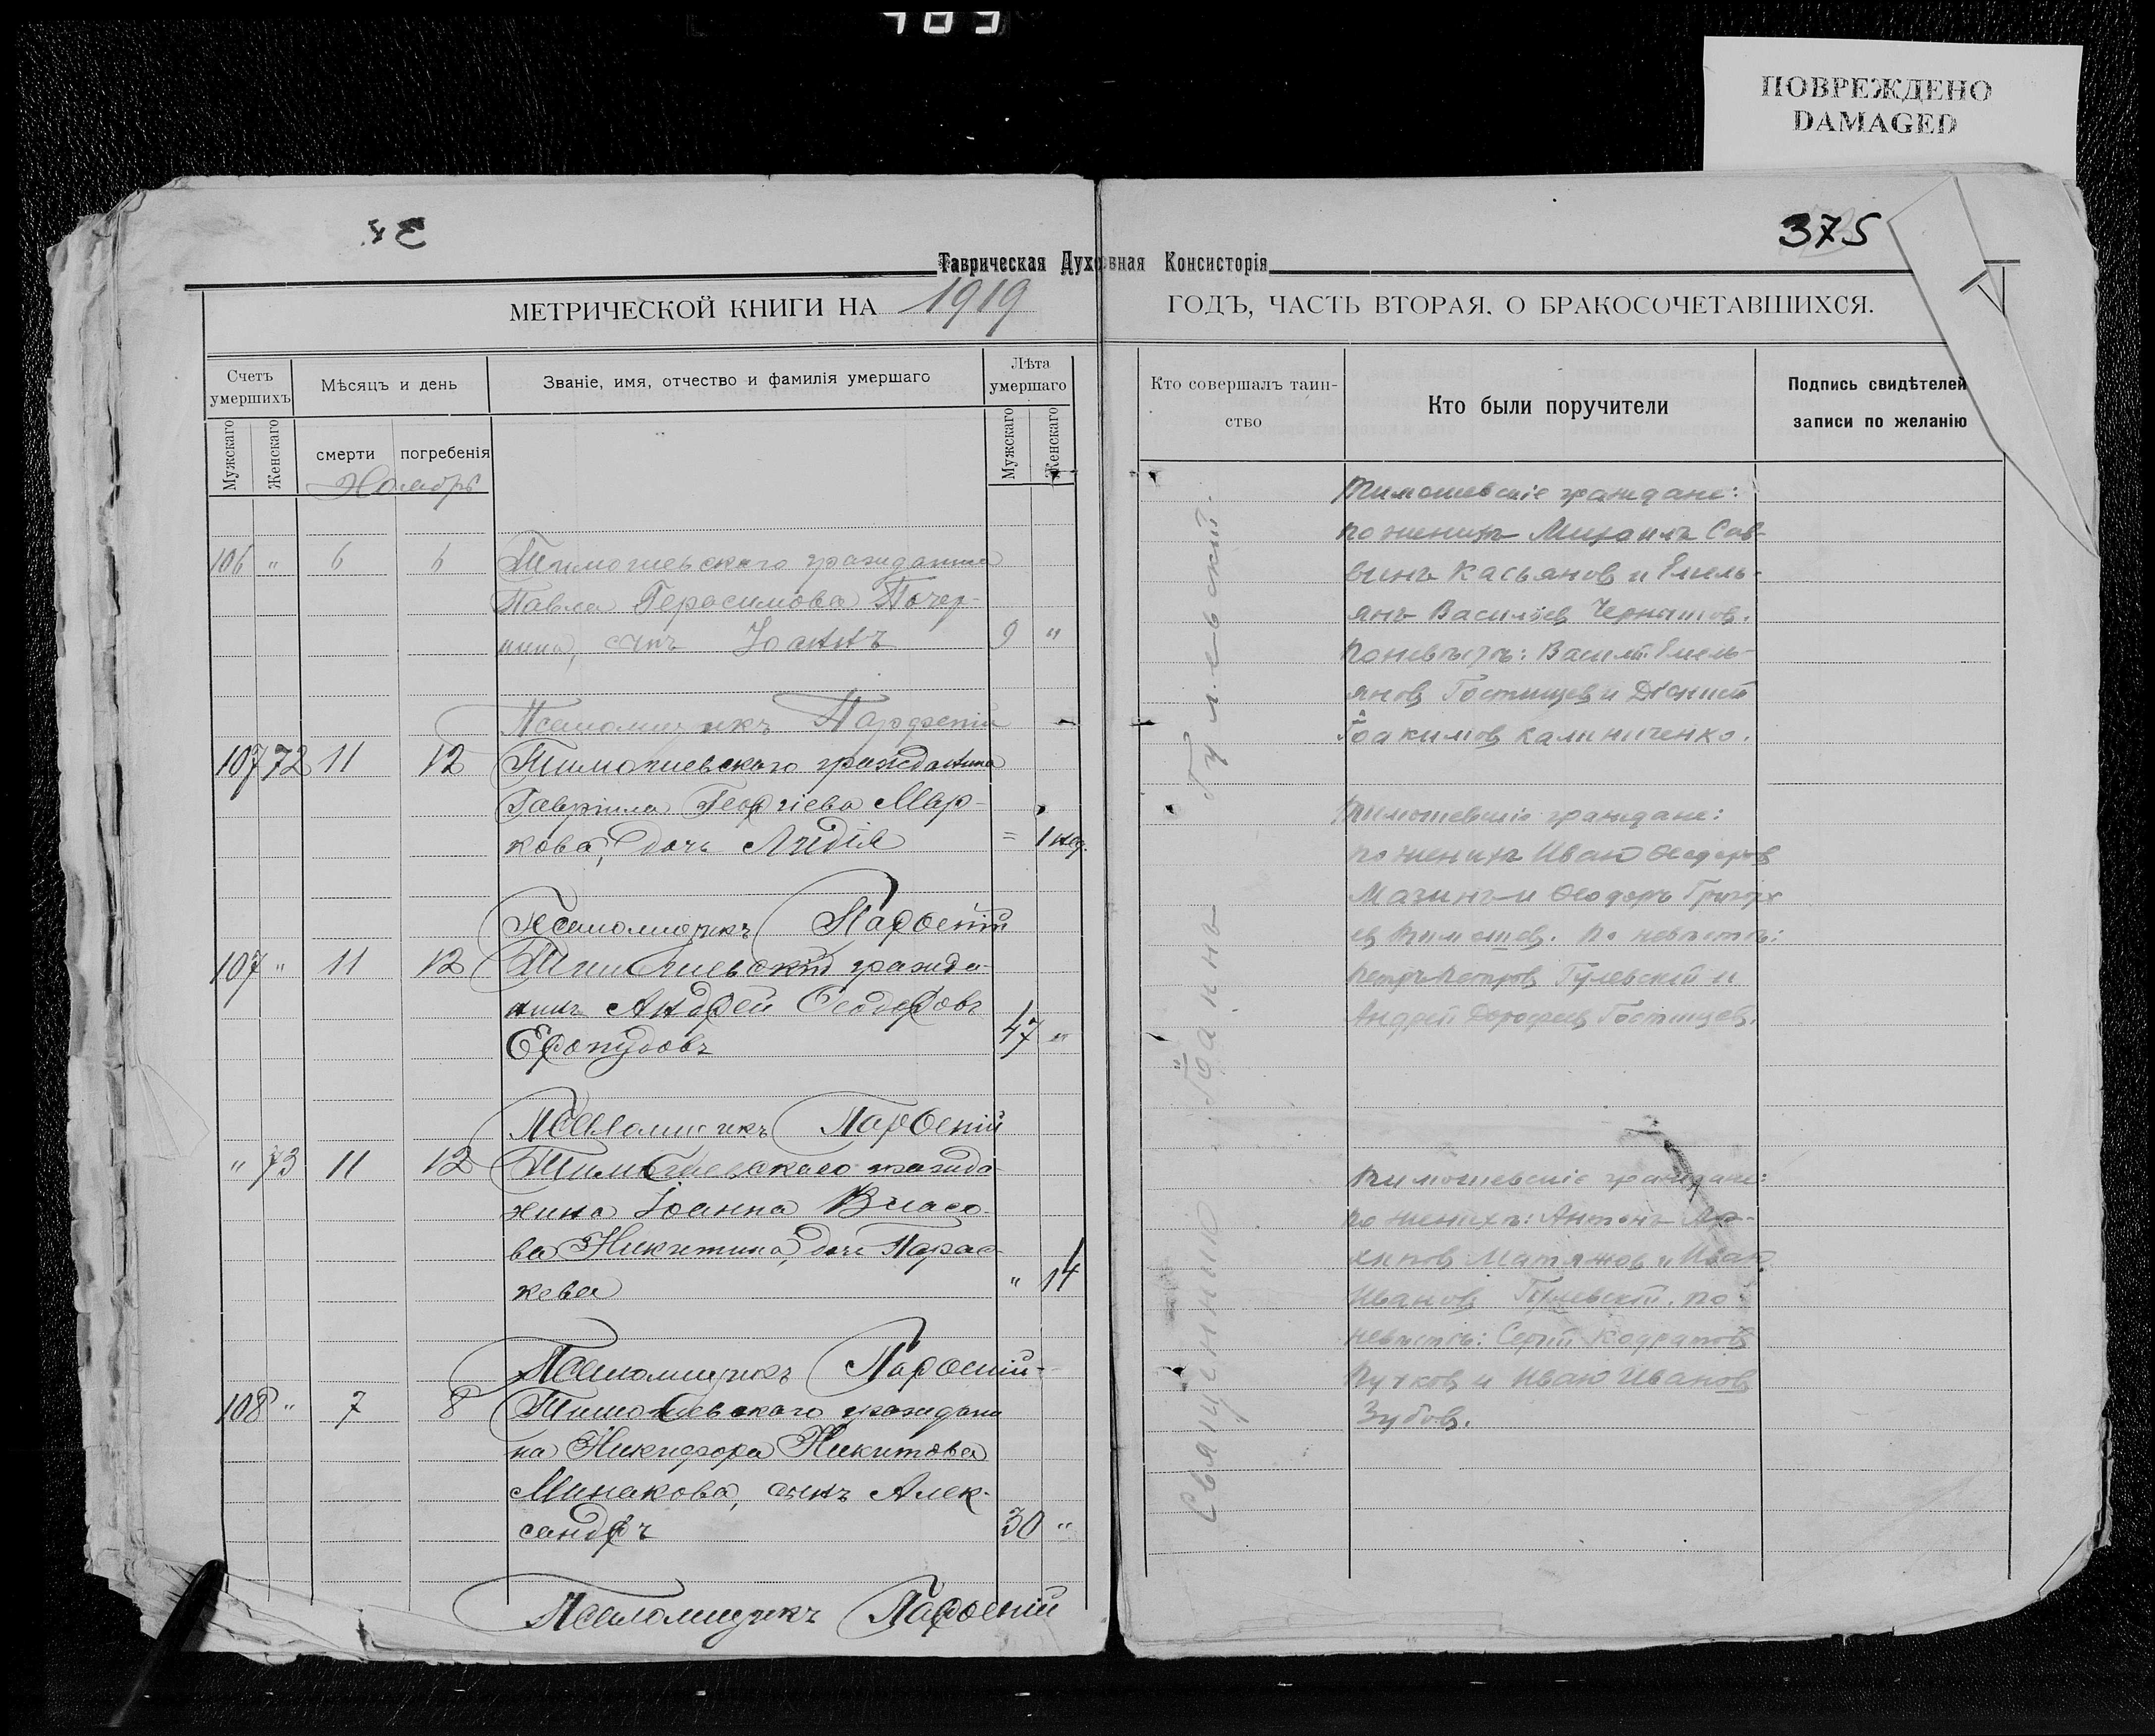 ПОВРЕЖДЕНО
DAMAGED
375
Таврическая Духовная Консисторія
МЕТРИЧЕСКОЙ КНИГИ НА 1919
ГОДЪ, ЧАСТЬ ВТОРАЯ, О БРАКОСОЧЕТАВШИХСЯ.
Счетъ умершихъ
Мѣсяцъ и день
Званіе, имя, отчество и фамилія умершаго
Лѣта умершаго
Мужскаго
Женскаго
смерти
погребенія
Мужскаго
Женскаго
Ноябрь
106 " 6 6 Тимошевскаго гражданина
Павла Герасимова
сынъ Іоаннъ 9 "
Псаломщикъ Парфеній
107 72 11 12 Тимошевскаго гражданина
Гавріила Георгіева Мар-
кова, дочь Лидія = 1 нед.
Псаломщикъ Парѳеній
107 " 11 12 Тимошевскій гражда-
нинъ Андрей Ѳеодоровъ
47 "
Псаломщикъ Парѳеній
" 73 11 12 Тимошевскаго гражда-
нина Іоанна Власо-
ва Никитина, дочь Парас-
кева " 14
Псаломщикъ Парѳеній
108 " 7 8 Тимошевскаго граждани
на Никифора Никитова
Минакова, сынъ Алек-
сандръ 30 "
Псаломщикъ Парѳеній
Кто совершалъ таин-
ство
Кто были поручители
Подпись свидѣтелей
записи по желанію
Священникъ Іоаннъ Гулевскій.
Тимошевскіе граждане:
по женихѣ Михаилъ Сав-
винъ Касьянов и Емель-
янъ Васильев
По невѣстѣ: Василій Емель-
янов Гостищев и Діонисій
Іоакимов Калиниченко.
Тимошевскіе граждане:
по женихѣ Иван Ѳеодоров
Мачинъ и Ѳеодоръ Григорь
ев Тимошев. По невѣстѣ:
Петръ Петров Гулевскій и
Андрей Дорофеев Гостищев.
Тимошевскіе граждане:
по женихѣ: Антонъ Ар-
хипов Матяжов и Иван
Иванов Гулевскій. по
невѣстѣ: Сергій Кодратов
Пучков и Иван Иванов
Зубов.